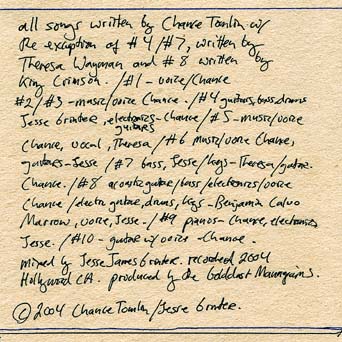 all songs written by Chance Tomlin w/
the exception of #4/#7, written by
Theresa Wayman and #8 written by
King Crimson. /#1 - voice/Chance
#2/#3 - music/voice Chance. /#4 guitars, bass, drums
Jesse Grinter, electronics - Chance /#5 - music/voice
guitars
Chance, vocal, Theresa /#6 music/voice Chance,
guitars - Jesse /#7 bass, Jesse/keys - Theresa/guitar.
Chance. /#8 acoustic guitar/bass/electronics/voice
Chance/electric guitar, drums, keys - Benjamin Calvo
Marrow, voice, Jesse. /#9 pianos - Chance, electronics
Jesse. /#10 - guitar w/ voice - Chance.
mixed by Jesse James Grinter. recorded 2004
Hollywood CA. produced by the Golddust Mannequins.
© 2004 Chance Tomlin/Jesse Grinter.